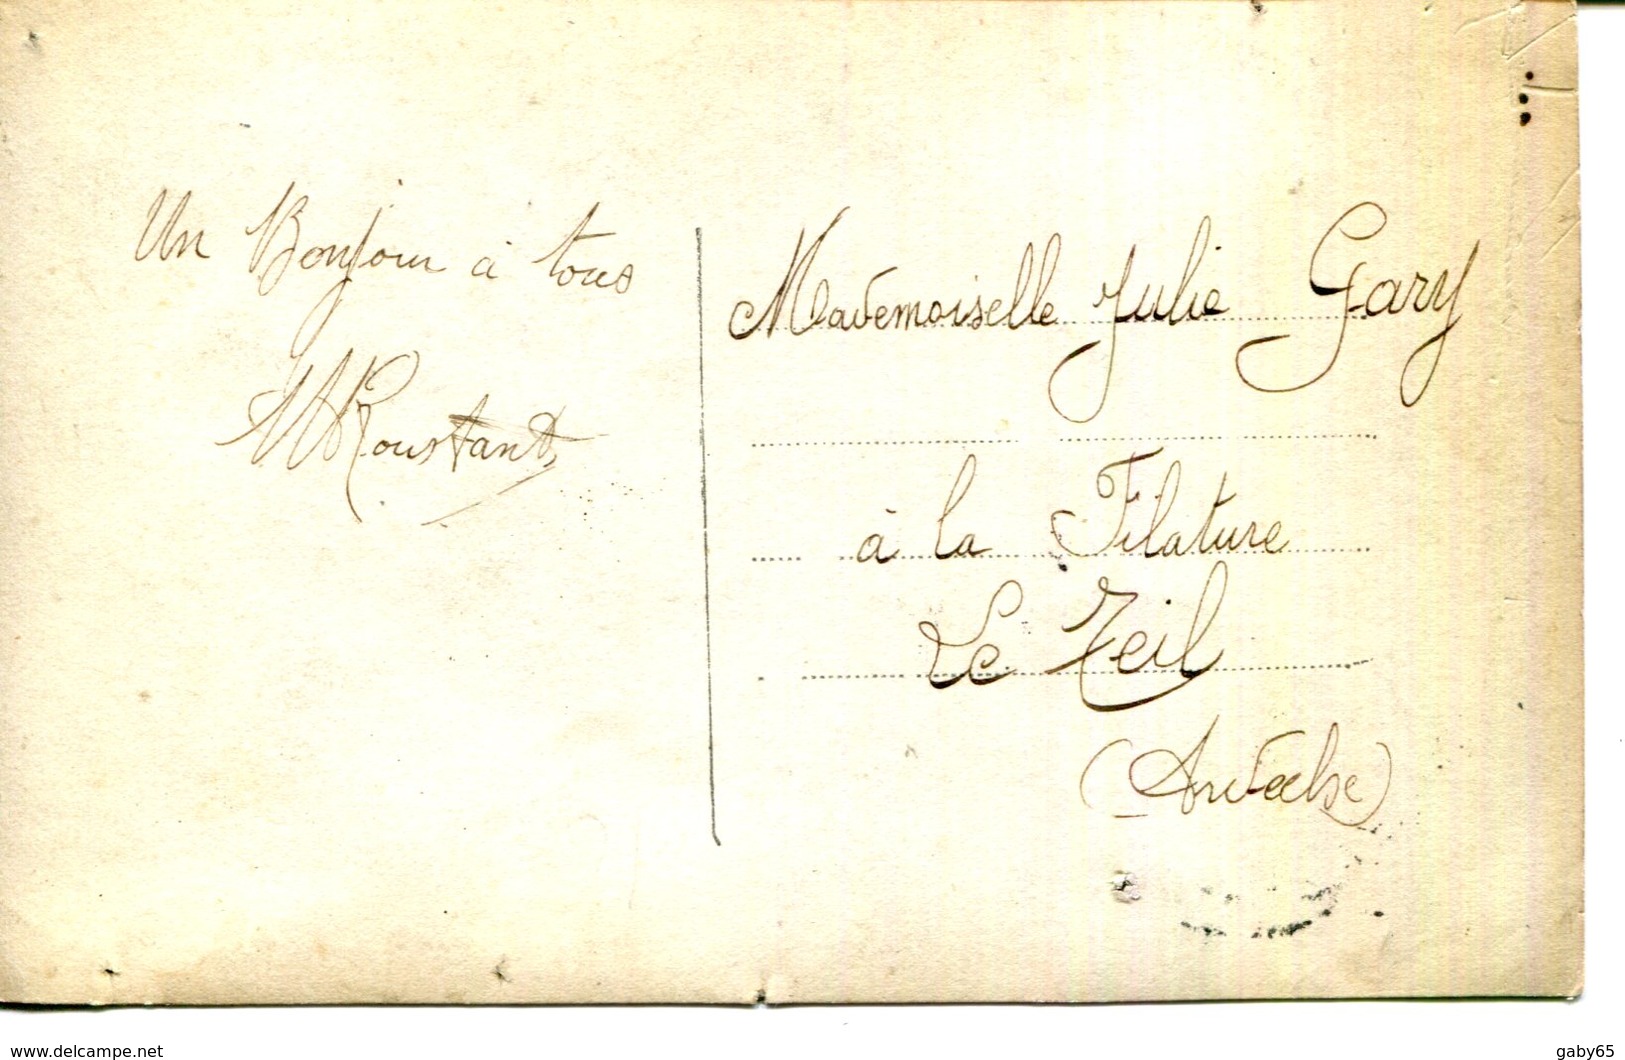 Un Bonjour à tous
MRoustant
Mademoiselle Julie Gary
à la Filature
Le Teil
(Ardèche)
www.delcampe.net
gaby65